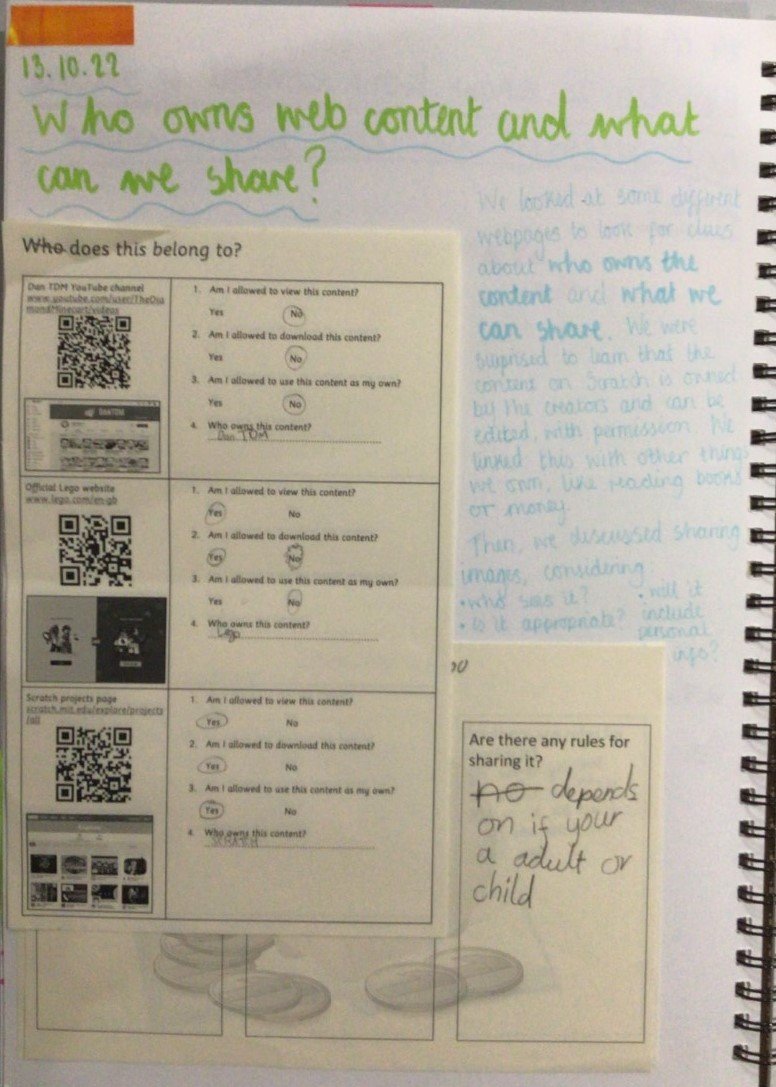 13.10.22
Who owns web content and what
can we share?
We looked at some different
webpages to look for clues
about who owns the
content and what we
can share. We were
surprised to learn that the
content on Scratch is owned
by the creators and can be
edited, with permission. We
linked this with other things
we own, like reading books
or money.
Then, we discussed sharing
images, considering
• who sees it? • will it
• is it appropriate? include
personal
info?
Who does this belong to?
Dan TDM YouTube channel
www.youtube.com/user/TheDia
mondMinecart/videos
DanTDM
1. Am I allowed to view this content?
Yes No
2. Am I allowed to download this content?
Yes No
3. Am I allowed to use this content as my own?
Yes No
4. Who owns this content?
Dan TDM
Official Lego website
www.lego.com/en-gb
1. Am I allowed to view this content?
Yes No
2. Am I allowed to download this content?
Yes No
3. Am I allowed to use this content as my own?
Yes No
4. Who owns this content?
Lego
Scratch projects page
scratch.mit.edu/explore/projects
/all
1. Am I allowed to view this content?
Yes No
2. Am I allowed to download this content?
Yes No
3. Am I allowed to use this content as my own?
Yes No
4. Who owns this content?
SCRATCH
Are there any rules for
sharing it?
no depends
on if your
a adult or
child